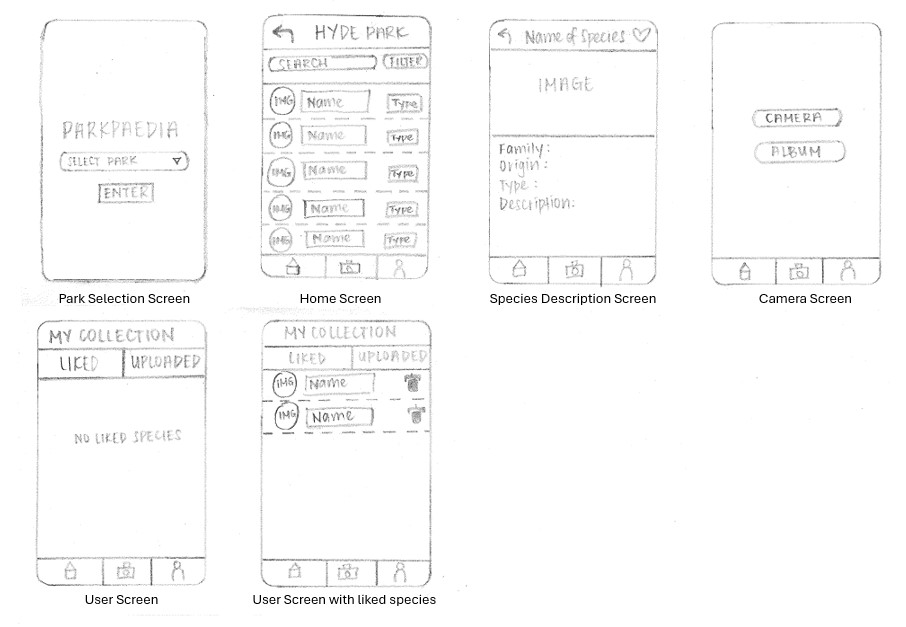 PARKPAEDIA
SELECT PARK
ENTER
Park Selection Screen
HYDE PARK
SEARCH
FILTER
IMG Name Type
IMG Name Type
IMG Name Type
IMG Name Type
IMG Name Type
Home Screen
Name of Species
IMAGE
Family:
Origin:
Type:
Description:
Species Description Screen
CAMERA
ALBUM
Camera Screen
MY COLLECTION
LIKED UPLOADED
NO LIKED SPECIES
User Screen
MY COLLECTION
LIKED UPLOADED
IMG Name
IMG Name
User Screen with liked species